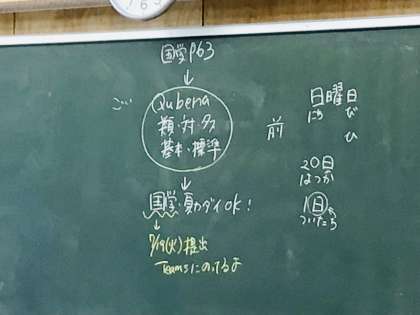 国学 P63
↓
Qubena
類・対・多
基本・標準
↓
国学・夏ダイ OK!
↓
7/19(火)提出
Teamsにのってるよ
ごい
前
日曜日
にち び
ひ
20日
はつか
1日
ついたち